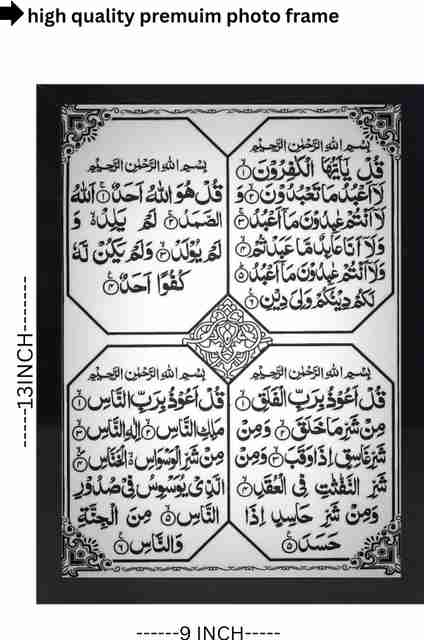 high quality premuim photo frame
بِسْمِ اللهِ الرَّحْمٰنِ الرَّحِيْمِ
قُلْ يٰٓاَيُّهَا الْكٰفِرُوْنَ ۙ﴿۱﴾
لَآ اَعْبُدُ مَا تَعْبُدُوْنَ ۙ﴿۲﴾ وَ
لَآ اَنْتُمْ عٰبِدُوْنَ مَآ اَعْبُدُ ۚ﴿۳﴾
وَلَآ اَنَا عَابِدٌ مَّا عَبَدْتُّمْ ۙ﴿۴﴾
وَلَآ اَنْتُمْ عٰبِدُوْنَ مَآ اَعْبُدُ ؕ﴿۵﴾
لَكُمْ دِيْنُكُمْ وَلِيَ دِيْنِ ﴿۶﴾
بِسْمِ اللهِ الرَّحْمٰنِ الرَّحِيْمِ
قُلْ هُوَ اللهُ اَحَدٌ ۚ﴿۱﴾ اَللهُ
الصَّمَدُ ۚ﴿۲﴾ لَمْ يَلِدْ ۙ وَ
لَمْ يُوْلَدْ ۙ﴿۳﴾ وَلَمْ يَكُنْ لَّهٗ
كُفُوًا اَحَدٌ ﴿۴﴾
بِسْمِ اللهِ الرَّحْمٰنِ الرَّحِيْمِ
قُلْ اَعُوْذُ بِرَبِّ الْفَلَقِ ۙ﴿۱﴾
مِنْ شَرِّ مَا خَلَقَ ۙ﴿۲﴾ وَمِنْ
شَرِّ غَاسِقٍ اِذَا وَقَبَ ۙ﴿۳﴾ وَمِنْ
شَرِّ النَّفّٰثٰتِ فِي الْعُقَدِ ۙ﴿۴﴾
وَمِنْ شَرِّ حَاسِدٍ اِذَا
حَسَدَ ﴿۵﴾
بِسْمِ اللهِ الرَّحْمٰنِ الرَّحِيْمِ
قُلْ اَعُوْذُ بِرَبِّ النَّاسِ ۙ﴿۱﴾
مَلِكِ النَّاسِ ۙ﴿۲﴾ اِلٰهِ النَّاسِ ۙ﴿۳﴾
مِنْ شَرِّ الْوَسْوَاسِ ۙ الْخَنَّاسِ ۙ﴿۴﴾
الَّذِيْ يُوَسْوِسُ فِيْ صُدُوْرِ
النَّاسِ ۙ﴿۵﴾ مِنَ الْجِنَّةِ
وَالنَّاسِ ﴿۶﴾
-----13INCH-------
------9 INCH-----